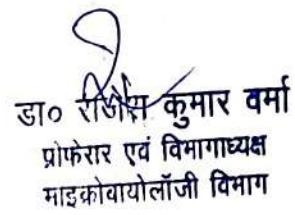 डा० कुमार वर्मा
प्रोफेसर एवं विभागाध्यक्ष
माइक्रोबायोलॉजी विभाग